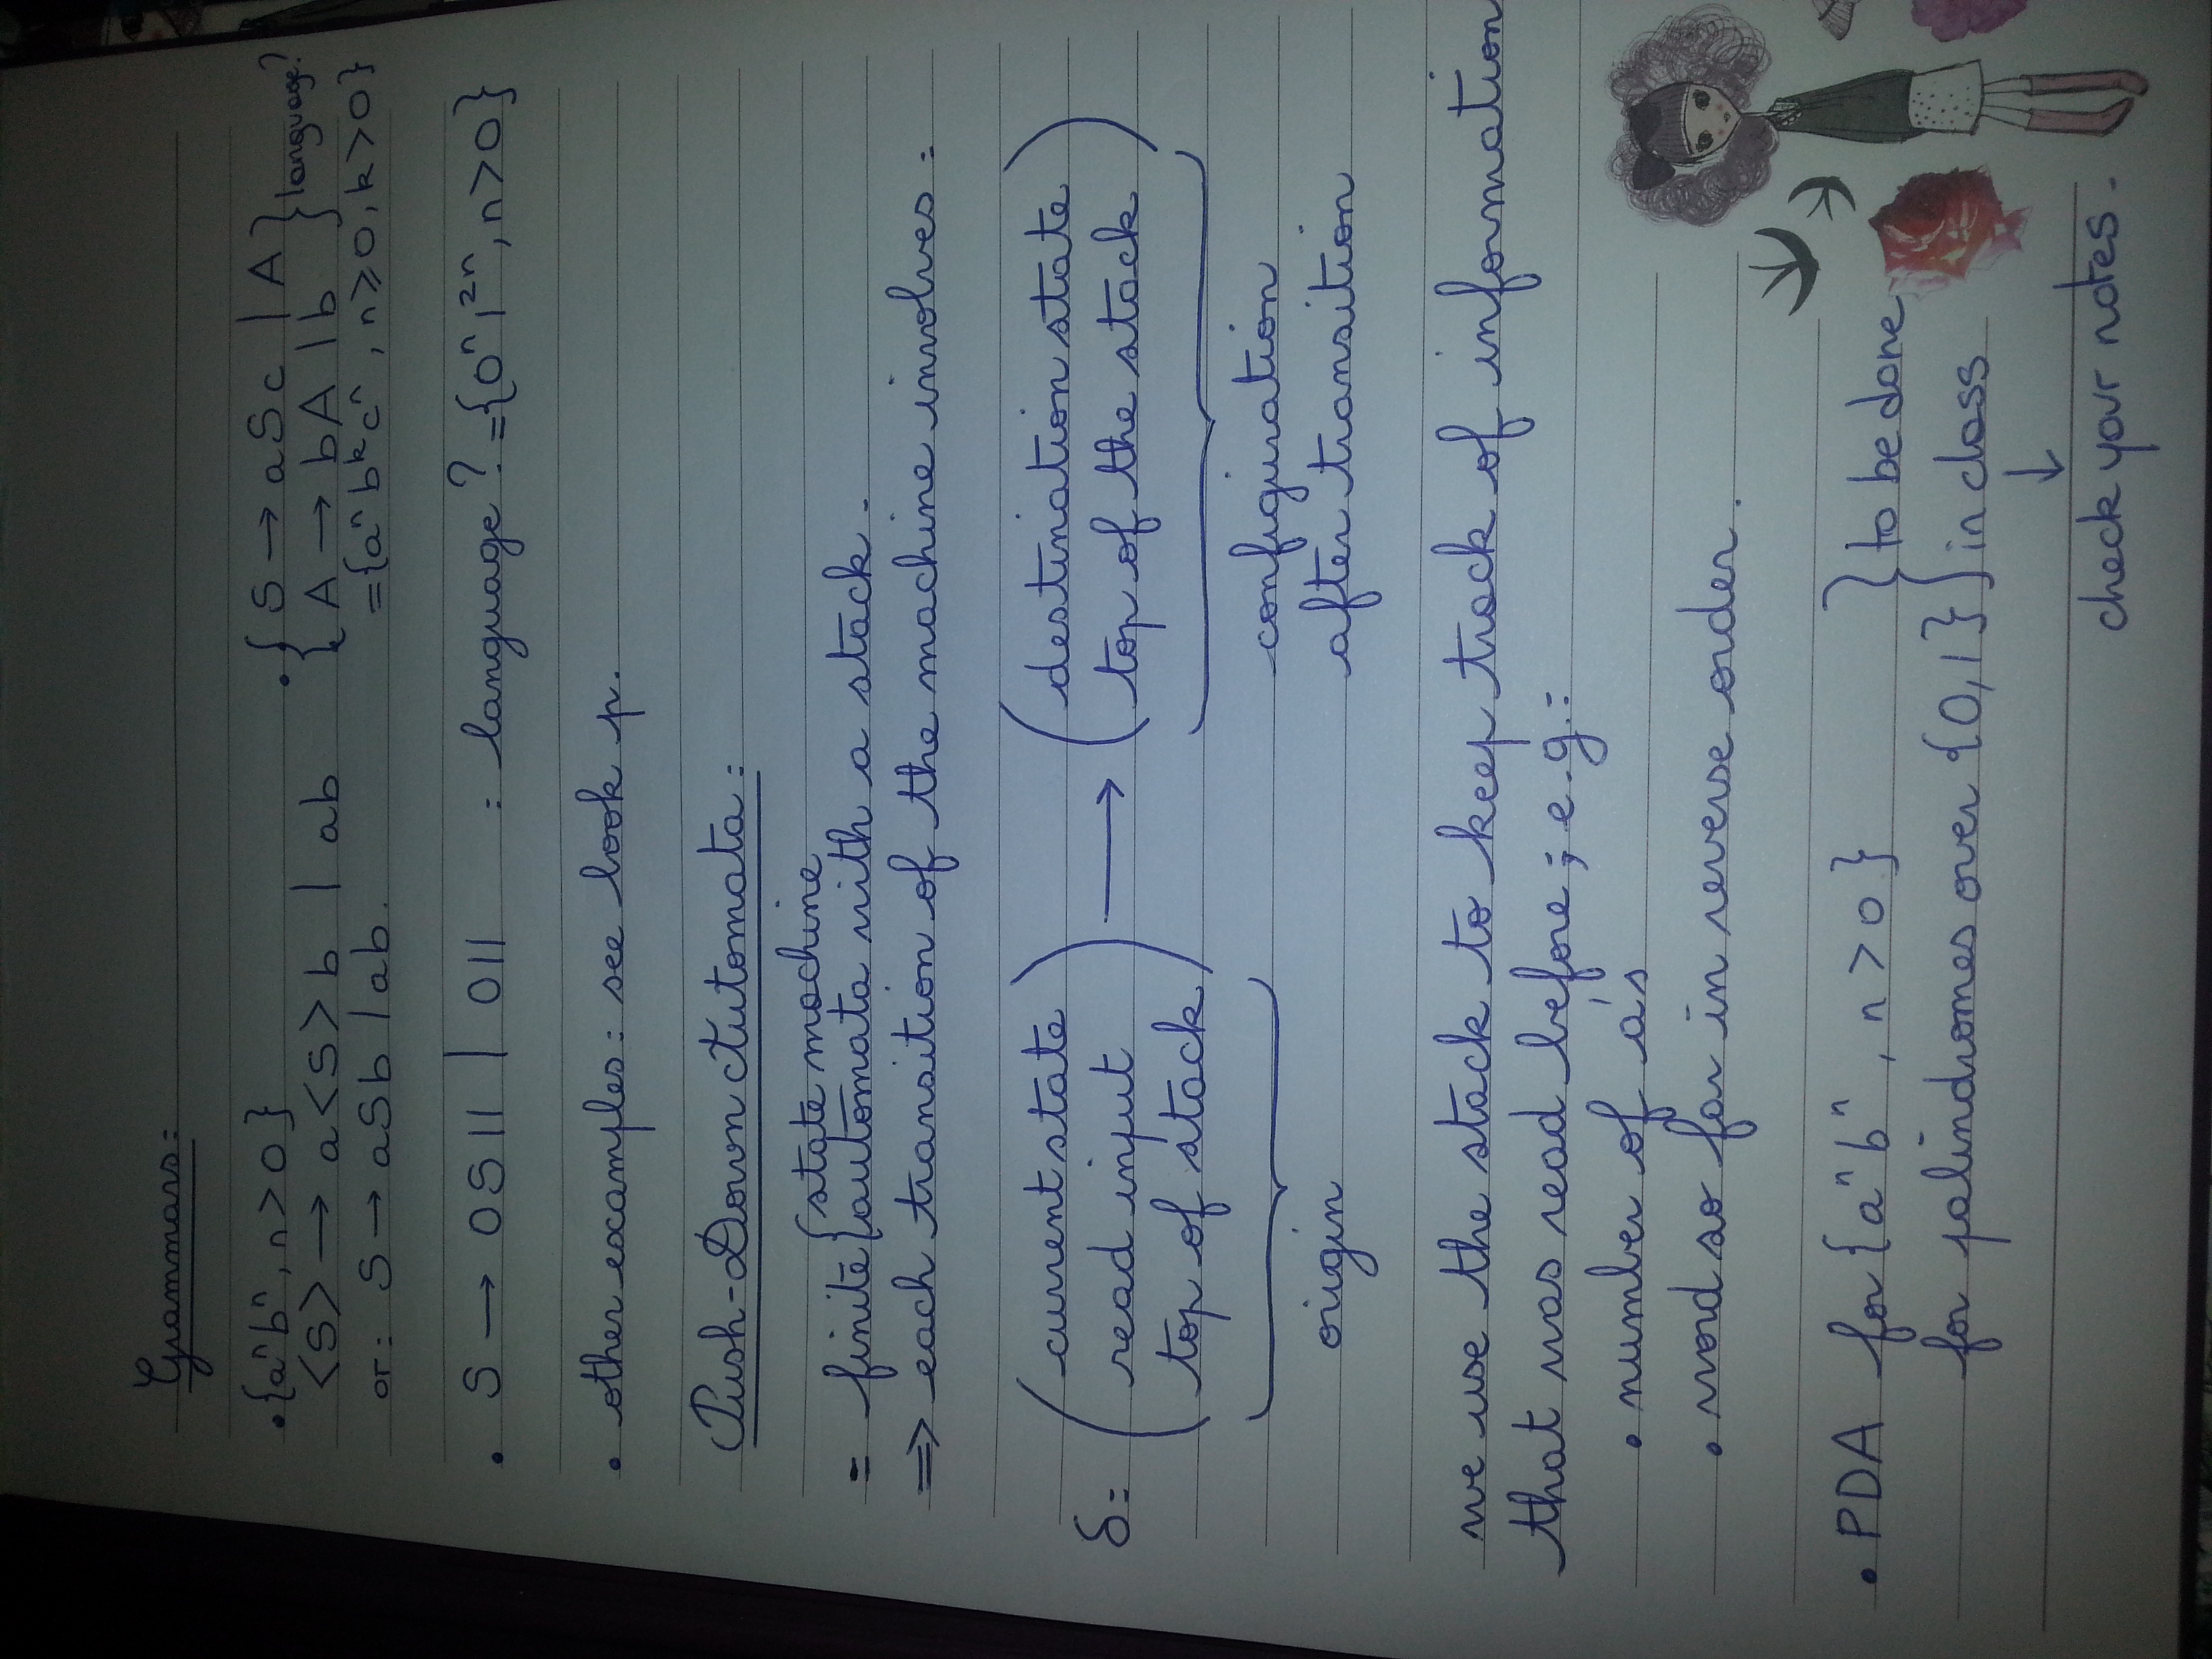 Grammars:
• {aⁿbⁿ, n > 0}
<S> → a<S>b | ab
or: S → aSb | ab.
• { S → aSc | A } language?
{ A → bA | b }
= {aⁿbᵏcⁿ, n ≥ 0, k > 0}
• S → 0S11 | 011 : language? = {0ⁿ1²ⁿ, n > 0}
• other examples: see book p.
Push-Down Automata:
= finite { state machine
{ automata with a stack.
⇒ each transition of the machine involves:
δ: ( current state ) → ( destination state )
( read input ) ( top of the stack )
( top of stack )
origin
configuration
after transition
we use the stack to keep track of information
that was read before; e.g.:
• number of a's
• word so far in reverse order.
• PDA for {aⁿbⁿ, n > 0} } to be done
for palindromes over {0,1} } in class
↓
check your notes.